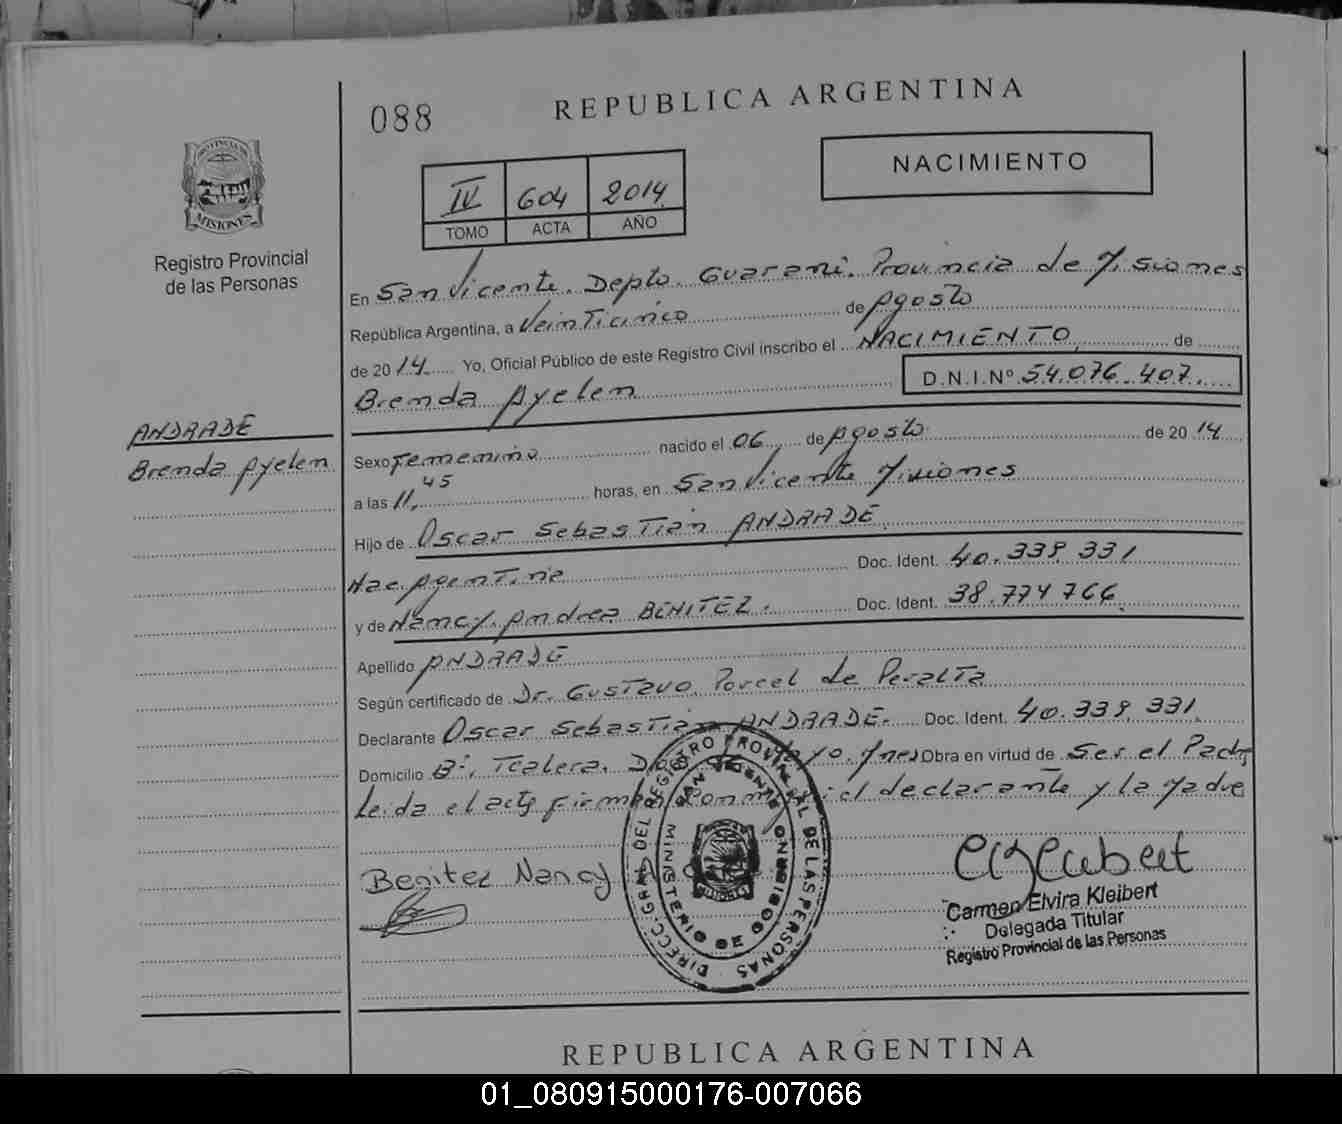 088
REPUBLICA ARGENTINA
NACIMIENTO
PROVINCIA DE
MISIONES
Registro Provincial
de las Personas
IV 604 2014
TOMO ACTA AÑO
En San Vicente. Depto. Guaraní. Provincia de Misiones
República Argentina, a Veinticinco de Agosto
de 2014 Yo, Oficial Público de este Registro Civil inscribo el NACIMIENTO de
Brenda Ayelen D.N.I.Nº 54.076.407
ANDRADE
Brenda Ayelen
Sexo Femenino nacido el 06 de Agosto de 2014
a las 11,45 horas, en San Vicente Misiones
Hijo de Oscar Sebastián ANDRADE
Nac. Argentina Doc. Ident. 40.339.331
y de Nancy Andrea BENITEZ. Doc. Ident. 38.774.766
Apellido ANDRADE
Según certificado de Dr. Gustavo Porcel de Peralta
Declarante Oscar Sebastián ANDRADE. Doc. Ident. 40.339.331
Domicilio Bº, Obra en virtud de Ser el Padre
Leida el acta firman declarante y la Madre
Benitez Nancy
Carmen Elvira Kleibert
Delegada Titular
Registro Provincial de las Personas
DIRECC. GRAL DEL REGISTRO PROVINCIAL DE LAS PERSONAS
MINISTERIO DE GOBIERNO
SAN VICENTE
REPUBLICA ARGENTINA
01_080915000176-007066